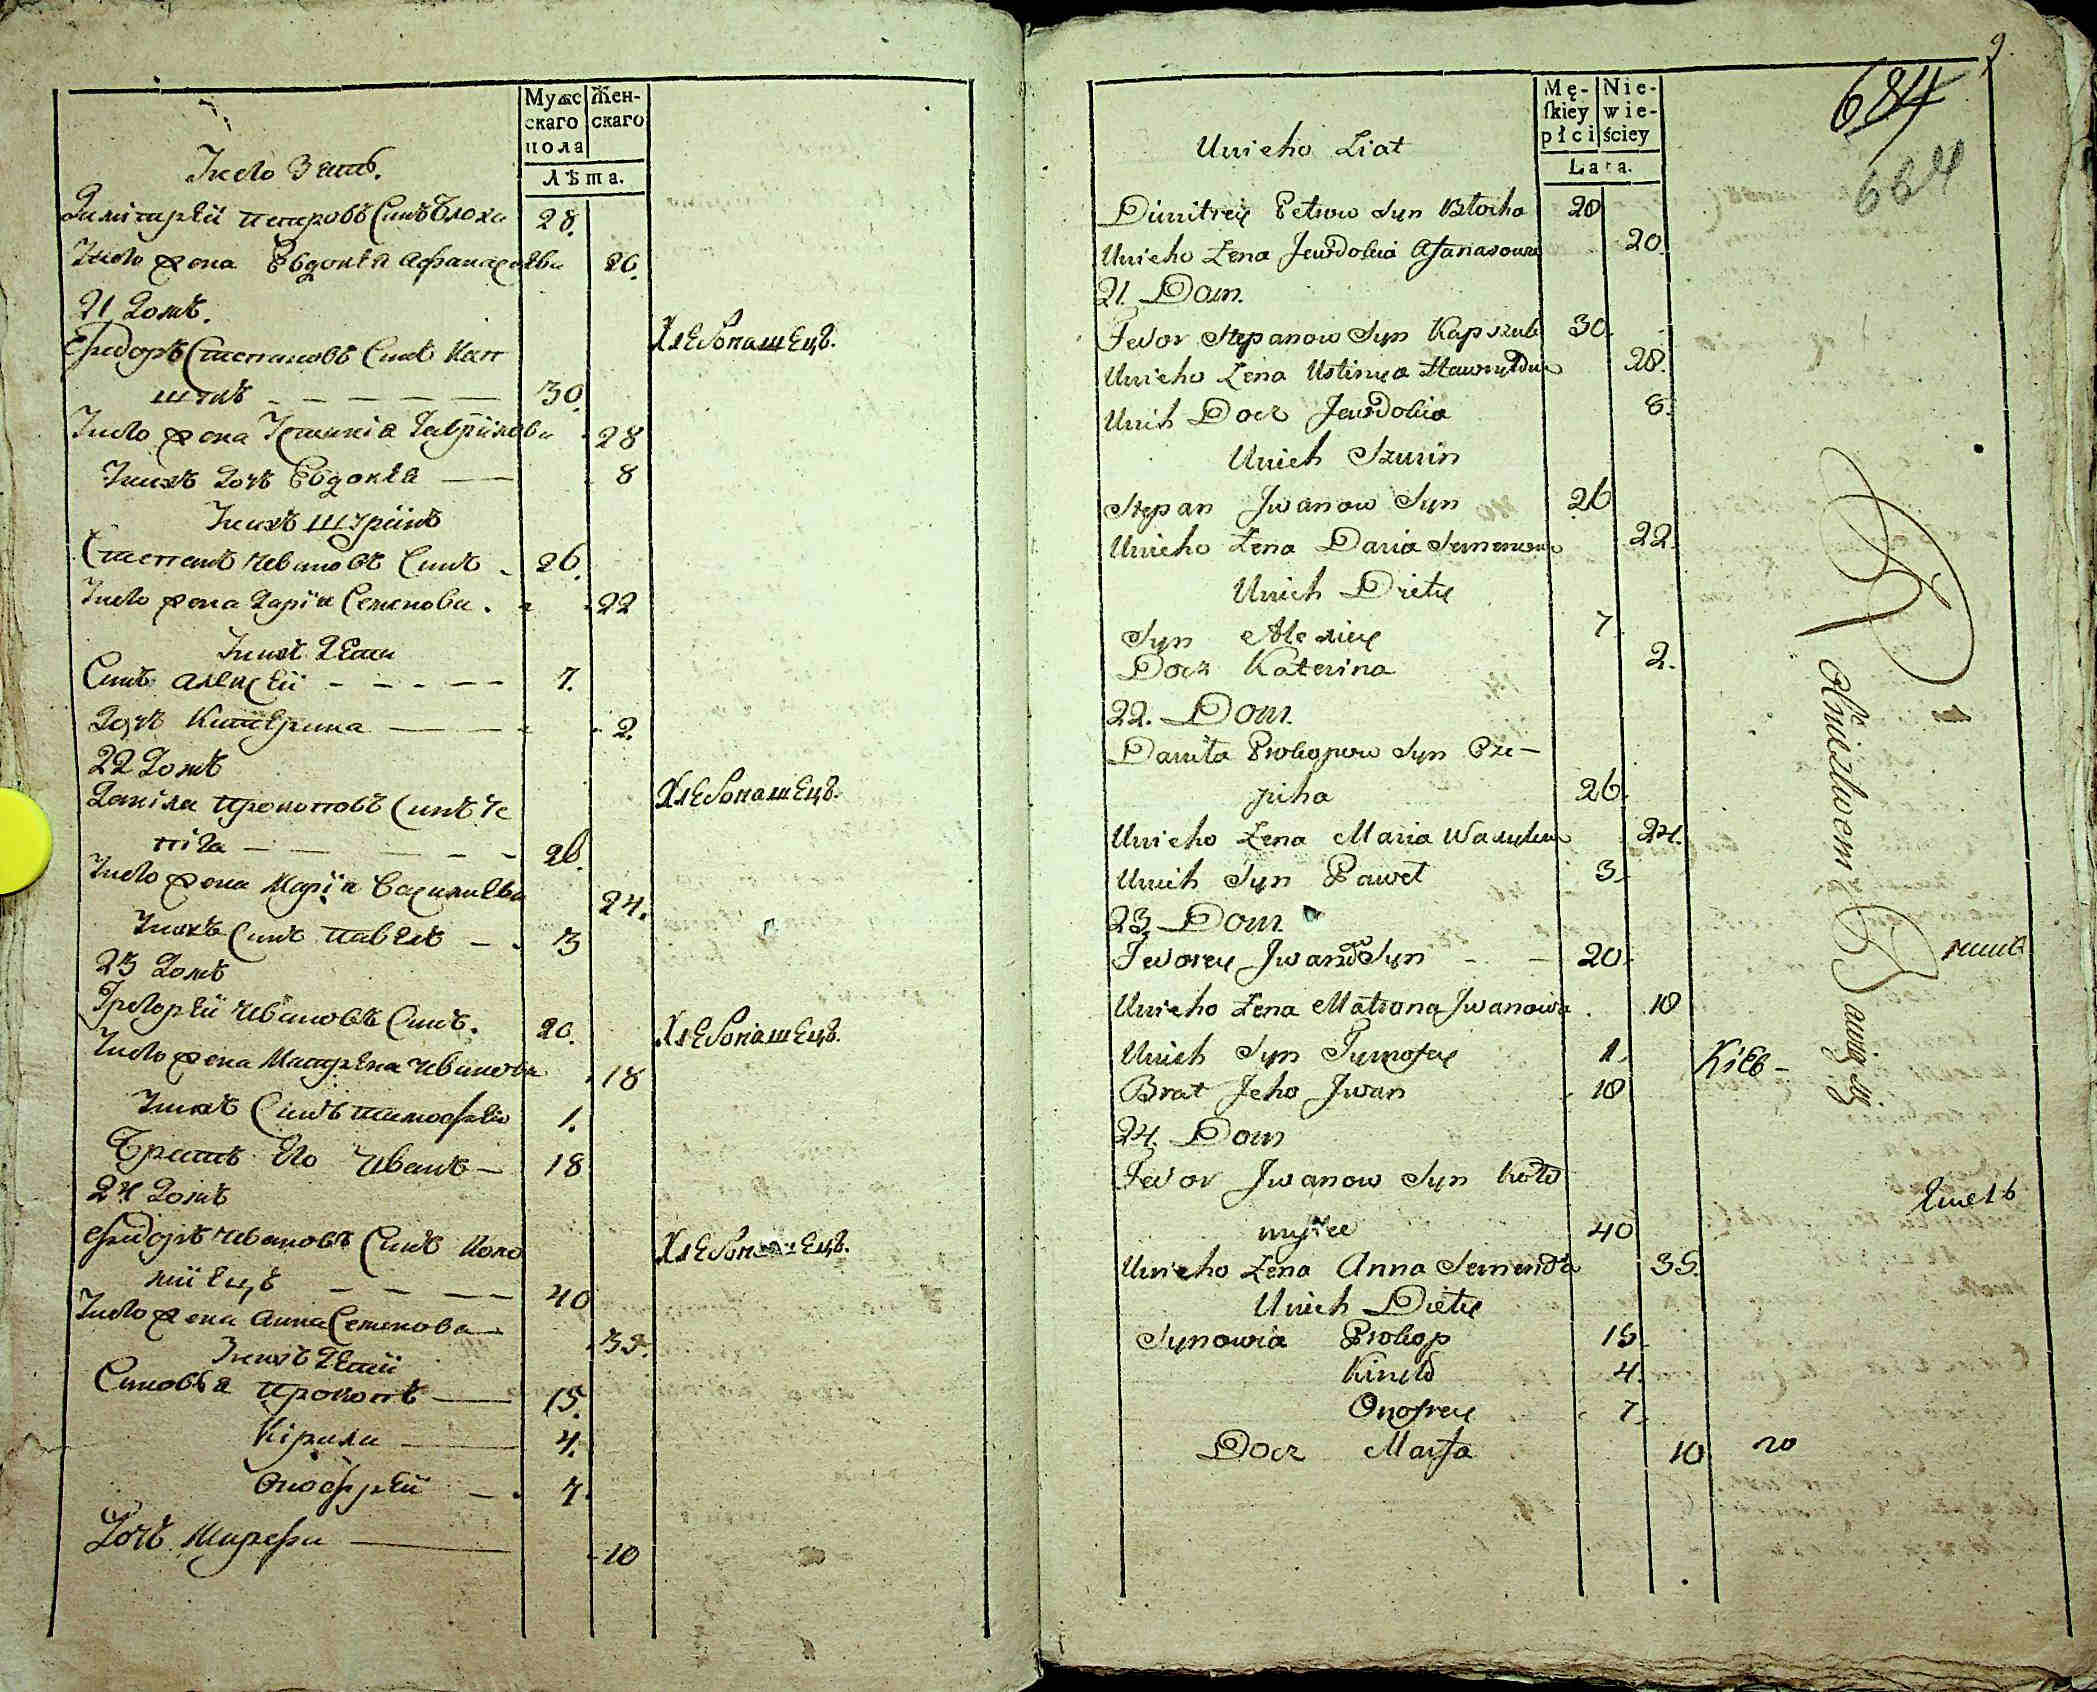 Мужс
скаго
пола
Жен-
скаго
Лѣта.
У него Зять.
Димитрѣй Петровъ Синъ Блоха 28.
У него жена Евдокѣа Афанасѣева 20.
21 Домъ.
Ѳедоръ Степановъ Синъ Кап
шукъ 30. Хлебопашецъ.
У него жена Устинѣа Гаврилова 28
У нихъ Дочъ Евдокѣа 8
У нихъ Шуринъ
Степанъ Ивановъ Синъ 26.
У него жена Дарія Семенова 22
У нихъ Дети
Синъ Алексѣй 7.
Дочъ Катерина 2.
22 Домъ
Даніла Прокоповъ Синъ Че
піга 26. Хлебопашецъ.
У него жена Марія Василиева 24.
У нихъ Синъ Павелъ 3
23 Домъ
Грегорѣй Ивановъ Синъ. 20. Хлебопашецъ.
У него жена Матрена Иванова 18
У нихъ Синъ Тимофѣй 1.
Братъ Его Иванъ 18
24 Домъ
Ѳедоръ Ивановъ Синъ Коло
міецъ 40 Хлебопашецъ.
У него жена Анна Семенова 35.
У нихъ Дети
Синовѣа Прокопъ 15.
Кірила 4.
Онофрѣй 7.
Дочъ Марфа 10
9.
684
684
Mę-
skiey
płci
Nie-
wie-
ściey
Lata.
Unieho Ziat
Dimitrey Petrow Syn Błocha 28
Unieho Żena Jewdokia Afanasowa 20.
21. Dom.
Fedor Stepanow Syn Kapszuk 30.
Unieho Żena Ustinya 28.
Unih Docz Jewdokia 8.
Unich Szurin
Stepan Jwanow Syn 26
Unieho Żena Daria Semenowa 22.
Unich Diety
Syn Alexiey 7.
Docz Katerina 2.
22. Dom.
Daniła Prokopow Syn Cze-
piha 26.
Unieho Żena Maria 24.
Unich Syn Paweł 3.
23. Dom
Jwanow Syn 20.
Unieho Żena Matrona Jwanowa 18
Unich Syn Tymofey 1.
Brat Jeho Jwan 18
24. Dom
Fedor Jwanow Syn Koło
40
Unieho Żena Anna 35.
Unich Diety
Synowia Prokop 15.
4.
Onofrey 7.
Docz Marfa 10
Кіев-